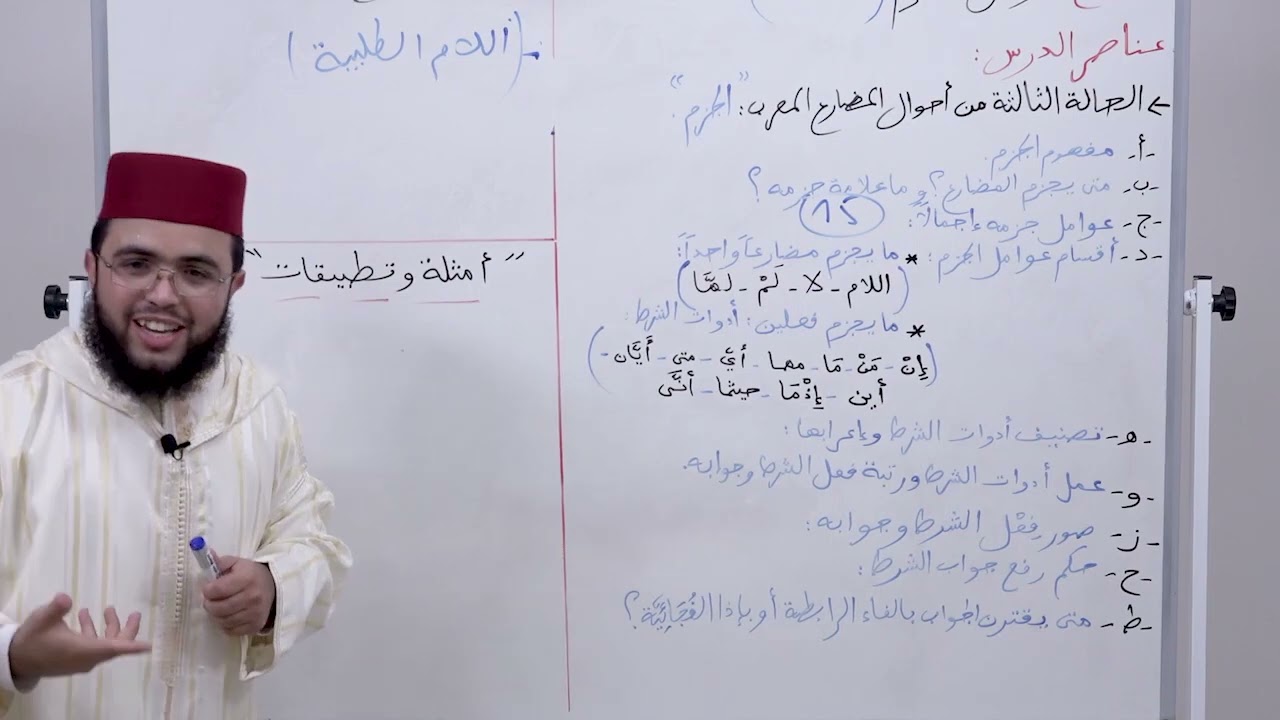 عناصر الدرس:
← الحالة الثالثة من أحوال المضارع المعرب: "الجزم".
-أ- مفهوم الجزم.
-ب- متى يجزم المضارع؟ وما علامة جزمه؟
-ج- عوامل جزمه إجمالاً: (15)
-د- أقسام عوامل الجزم: * ما يجزم مضارعاً واحداً:
(اللام - لا - لَمْ - لمَّا)
* ما يجزم فعلين: أدوات الشرط:
(إِنْ - مَنْ - مَا - مهما - أيّ - متى - أَيَّان -
أين - إِذْمَا - حيثما - أنَّى
-ه- تصنيف أدوات الشرط وإعرابها:
-و- عمل أدوات الشرط ورتبة فعل الشرط وجوابه.
-ز- صور فِعْل الشرط وجوابه:
-ح- حكم رفع جواب الشرط:
-ط- متى يقترن الجواب بالفاء الرابطة أو بإذا الفُجَائِيَّة؟
- (اللام الطلبية)
"أمثلة وتطبيقات"